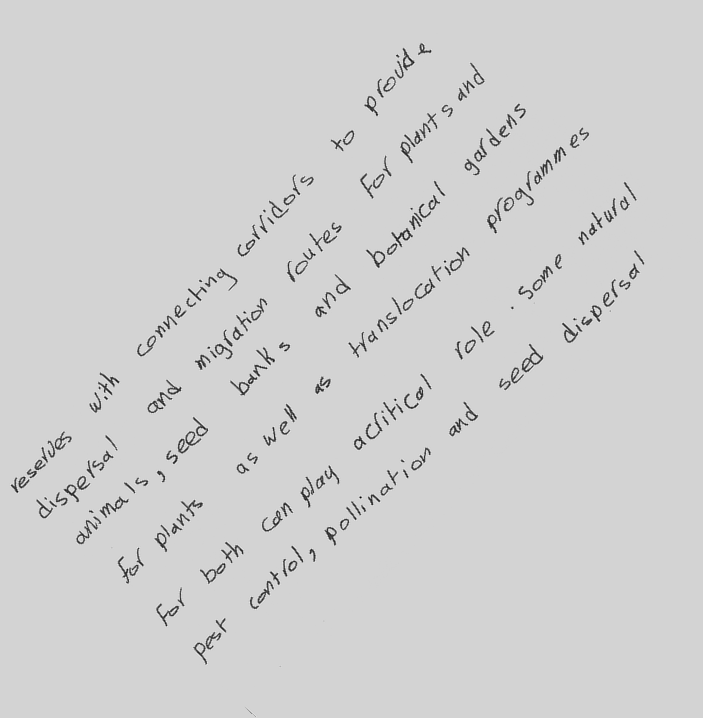 reserves with connecting corridors to provide
dispersal and migration routes for plants and
animals, seed banks and botanical gardens
for plants as well as translocation programmes
for both can play acritical role. some natural
pest control, pollination and seed dispersal